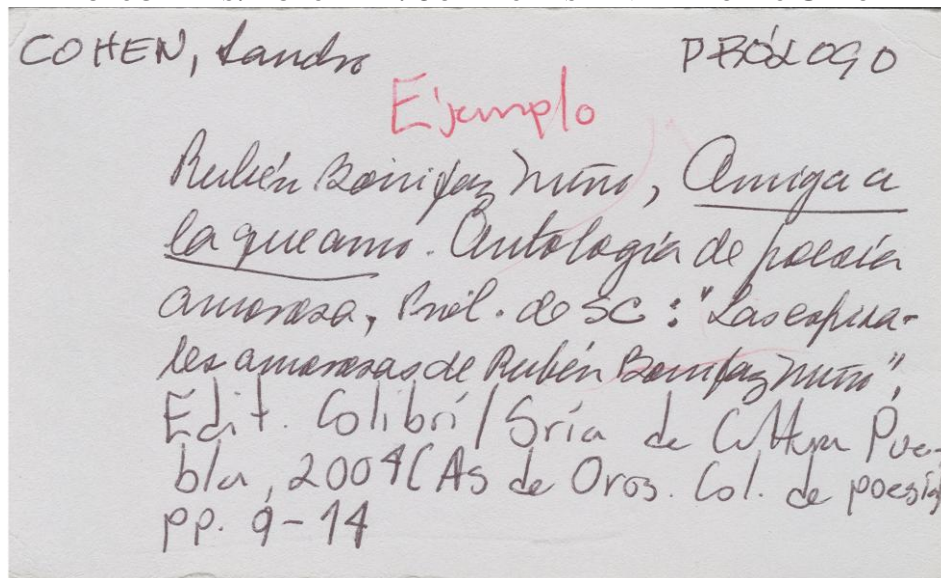 COHEN, Sandro PRÓLOGO
Ejemplo
Rubén Bonifaz Nuño, Amiga a
la que amo. Antología de poesía
amorosa, Pról. de SC: "Las espira-
les amorosas de Rubén Bonifaz Nuño",
Edit. Colibrí/Sría de Cultura Pue-
bla, 2004 (As de Oros. Col. de poesía
pp. 9-14